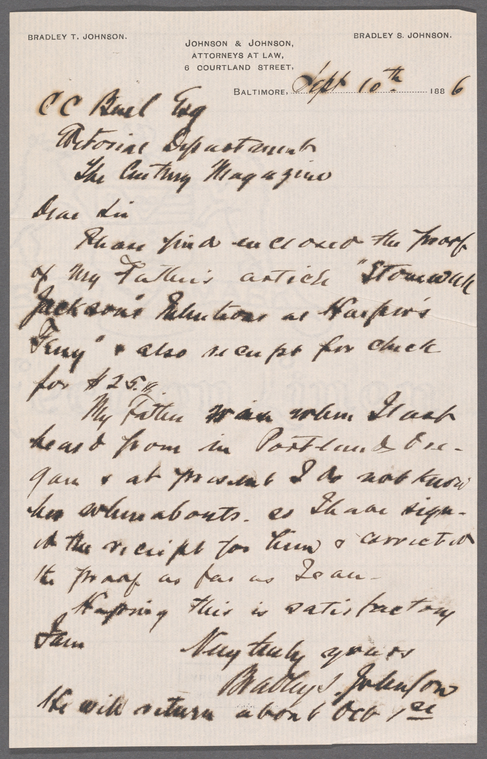 BRADLEY T. JOHNSON.
BRADLEY S. JOHNSON.
JOHNSON & JOHNSON,
ATTORNEYS AT LAW,
6 COURTLAND STREET.
BALTIMORE, Sept 10th 1886
C C Buel Esq
Editorial Department
The Century Magazine
Dear Sir
Please find enclosed the proof
of my Father's article "Stonewall
Jackson's Intentions at Harper's
Ferry" & also receipt for check
for $25.
My Father was when I last
heard from in Portland Ore-
gon & at present I do not know
his whereabouts. so I have sign-
ed the receipt for him & corrected
the proof as far as I can-
Hoping this is satisfactory
I am Very truly yours
Bradley S. Johnson
He will return about Oct 1st